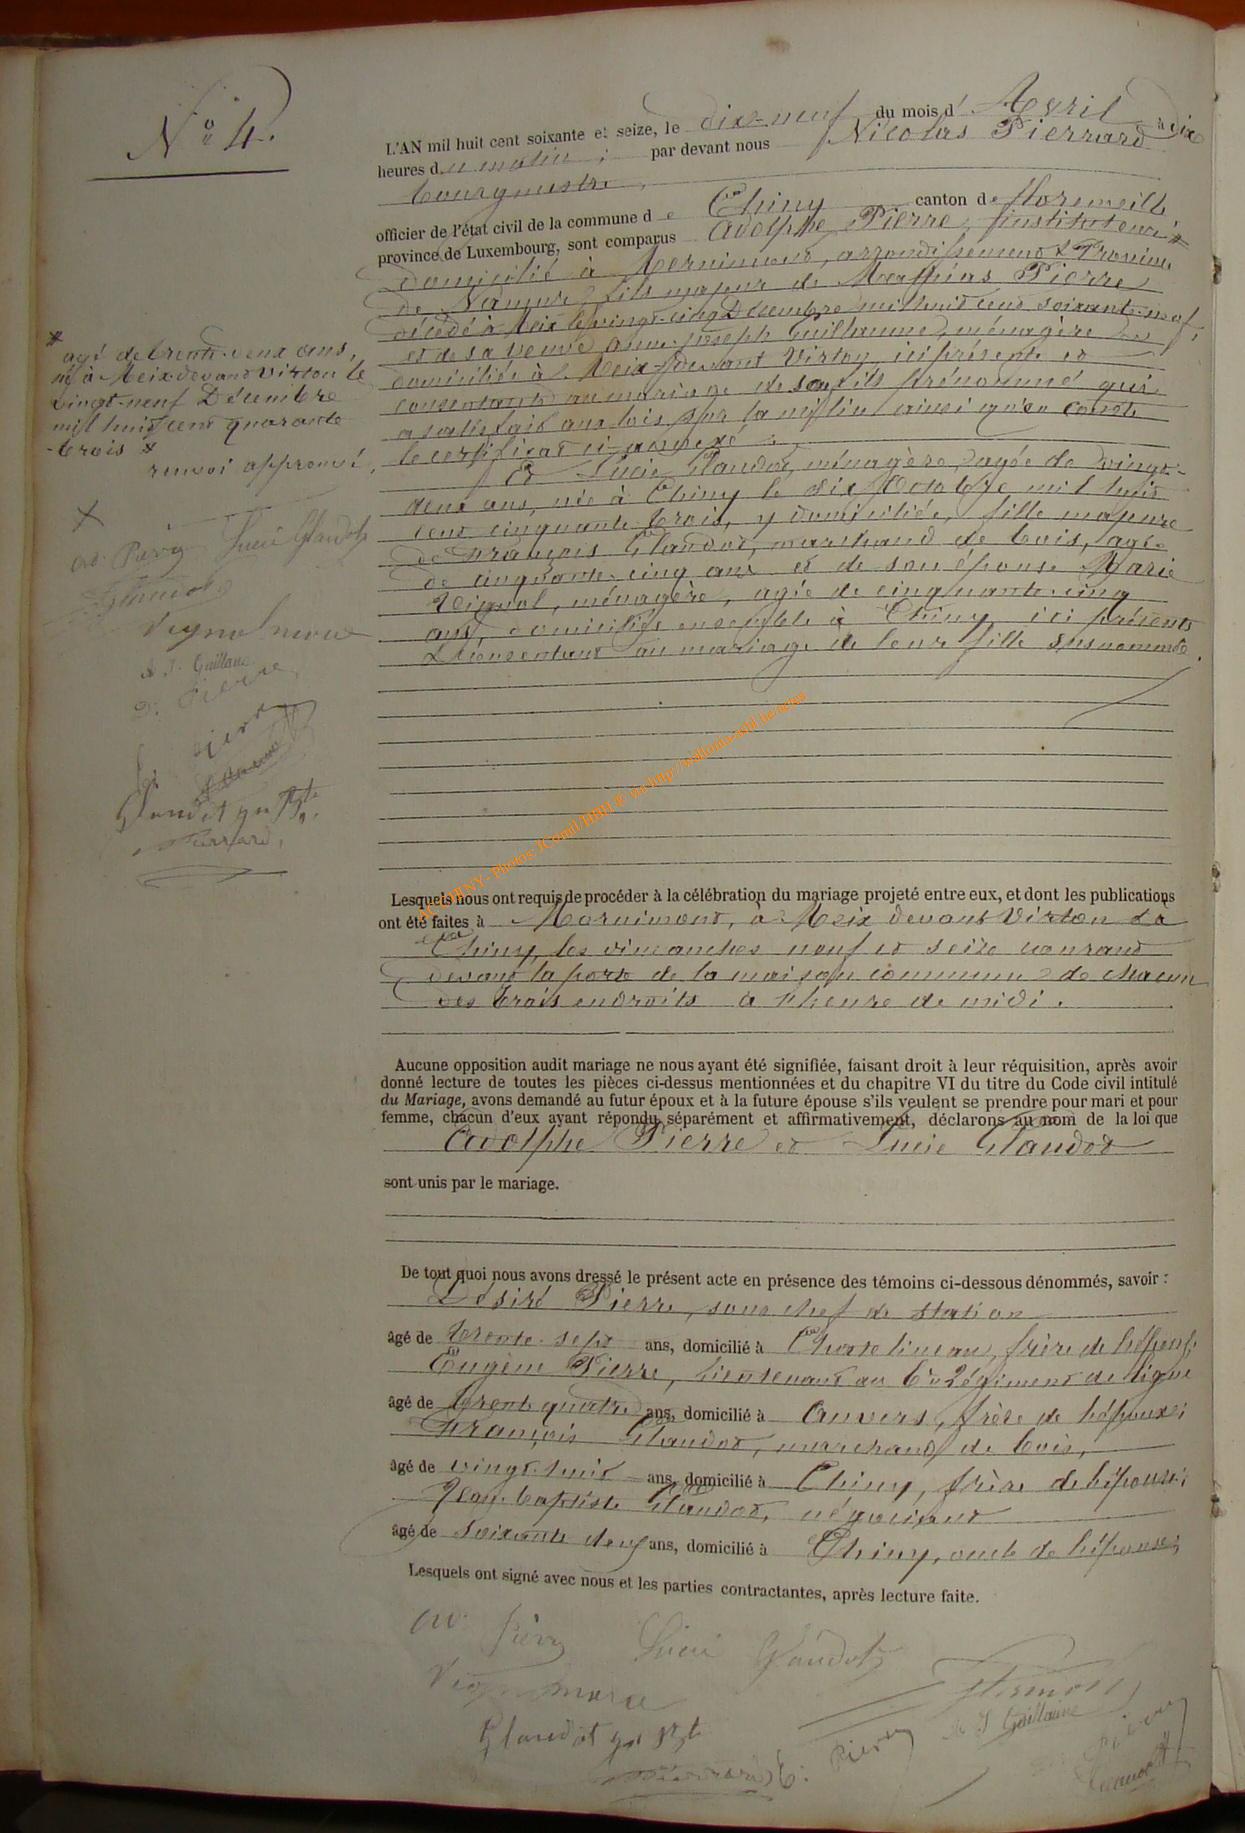 N° 4.
L'AN mil huit cent soixante et seize, le dix-neuf du mois d'Avril à dix
heures du matin ; par devant nous Nicolas Pierrard
bourgmestre,
officier de l'état civil de la commune de Chiny canton de florenville,
province de Luxembourg, sont comparus Adolphe Pierre, instituteur *
domicilié à Mornimont, arrondissement & Province
de Namur, fils majeur de Mathias Pierre
décédé à Meix le vingt-cinq Décembre mil huit cent soixante-neuf,
et de sa veuve Anne-Joseph Guillaume, ménagère
domiciliée à Meix-devant Virton, ici présente et
consentante au mariage de son fils prénommé qui
a satisfait aux lois sur la milice ainsi qu'en conste
le certificat ci-annexé.
Et Lucie Glaudot, ménagère, âgée de vingt-
deux ans, née à Chiny le dix Octobre mil huit
cent cinquante trois, y domiciliée, fille majeure
de François Glaudot, marchand de bois, âgé
de cinquante-cinq ans et de son épouse Marie
Vignol, ménagère, âgée de cinquante-cinq
ans, domiciliés ensemble à Chiny, ici présents
& consentant au mariage de leur fille susnommée.
* âgé de trente-deux ans,
né à Meix devant Virton le
vingt-neuf Décembre
mil huit cent quarante
-trois *
renvoi approuvé,
ad. Pierre Lucie Glaudot
Vignol marie
A J. Guillaume
D. Pierre
E. Pierre
Glaudot gn Bte
Pierrard,
AC CHINY - Photos: JCornil/HIBLE via http://wallonia-asbl.be/actes
Lesquels nous ont requis de procéder à la célébration du mariage projeté entre eux, et dont les publications
ont été faites à Mornimont, à Meix devant Virton & à
Chiny, les dimanches neuf et seize courant
devant la porte de la maison commune de chacun
des trois endroits à l'heure de midi.
Aucune opposition audit mariage ne nous ayant été signifiée, faisant droit à leur réquisition, après avoir
donné lecture de toutes les pièces ci-dessus mentionnées et du chapitre VI du titre du Code civil intitulé
du Mariage, avons demandé au futur époux et à la future épouse s'ils veulent se prendre pour mari et pour
femme, chacun d'eux ayant répondu séparément et affirmativement, déclarons au nom de la loi que
Adolphe Pierre et Lucie Glaudot
sont unis par le mariage.
De tout quoi nous avons dressé le présent acte en présence des témoins ci-dessous dénommés, savoir :
Désiré Pierre, sous chef de station
âgé de trente-sept ans, domicilié à Chatelineau, frère de l'époux;
Eugène Pierre, lieutenant au 6e Régiment de ligne
âgé de trente quatre ans, domicilié à Anvers, frère de l'époux;
François Glaudot, marchand de bois,
âgé de vingt-huit ans, domicilié à Chiny, frère de l'épouse;
Jean-baptiste Glaudot, négociant
âgé de soixante-deux ans, domicilié à Chiny, oncle de l'épouse;
Lesquels ont signé avec nous et les parties contractantes, après lecture faite.
ad. Pierre Lucie Glaudot
Vignol marie
A J Guillaume
Glaudot gn Bte
Pierrard E. Pierre